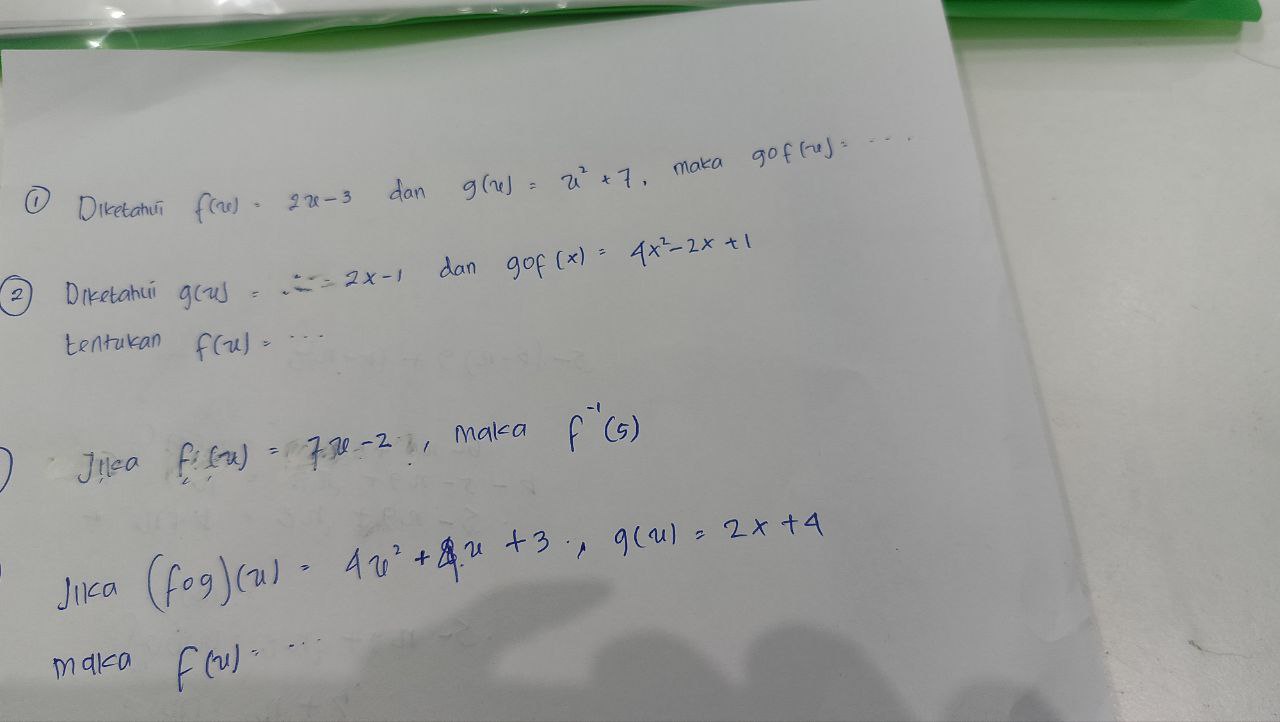 ① Diketahui f(x) = 2x - 3 dan g(x) = x² + 7, maka gof(x) = ....
② Diketahui g(x) = 2x-1 dan gof(x) = 4x²-2x+1
tentukan f(x) = ...
Jika f(x) = 7x-2, maka f⁻¹(5)
Jika (fog)(x) = 4x² + x + 3, g(x) = 2x+4
maka f(x) = ...